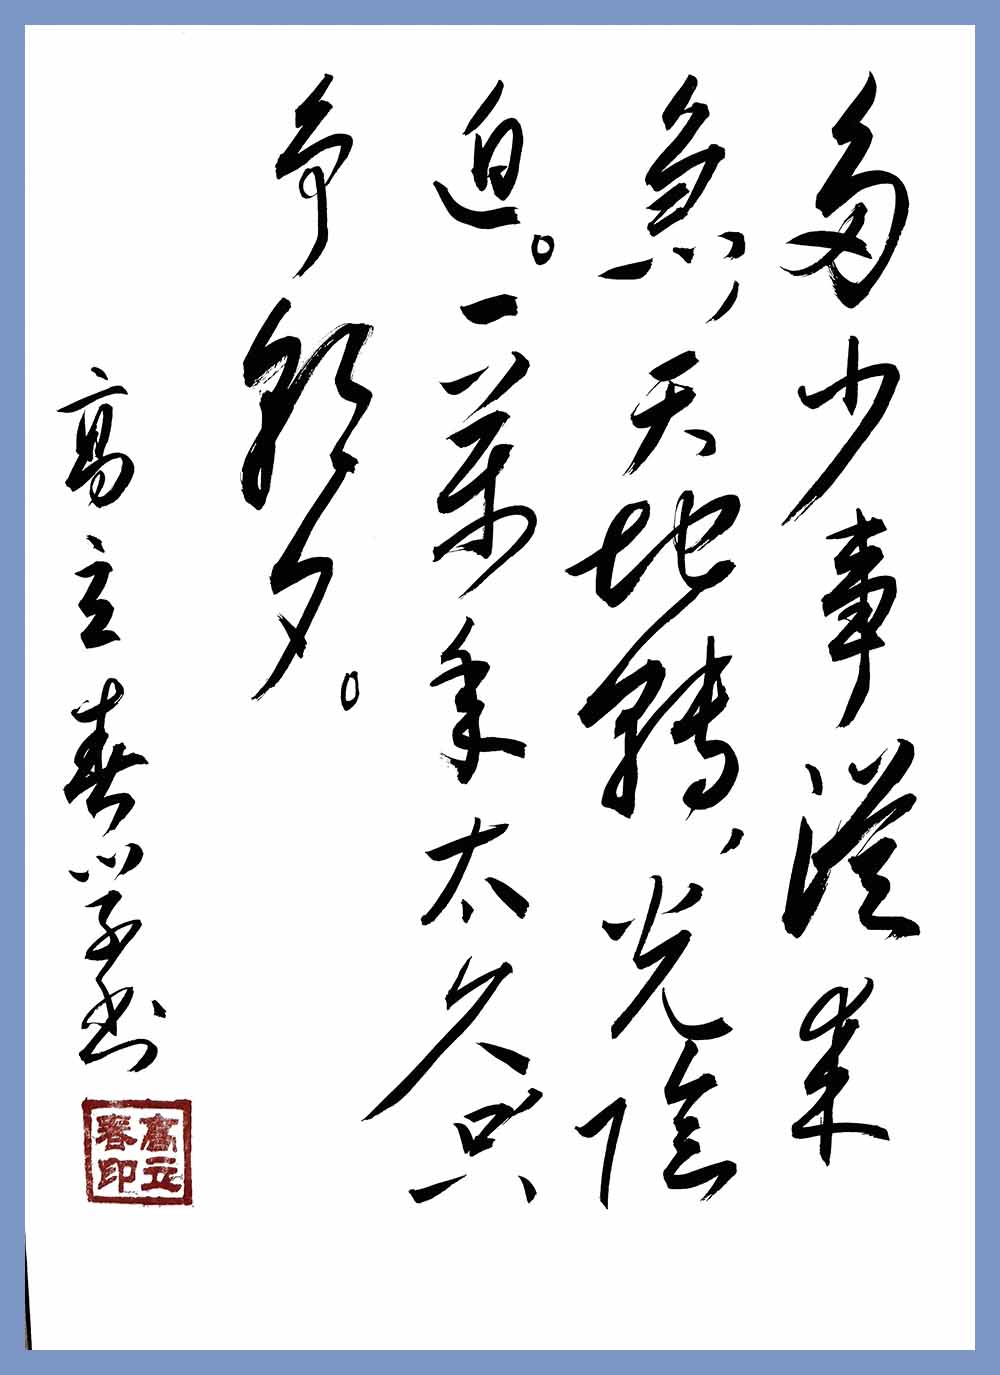 多少事從来
急，天地轉，光陰
迫。一萬年太久只
争朝夕。
高立春学书
高立春印